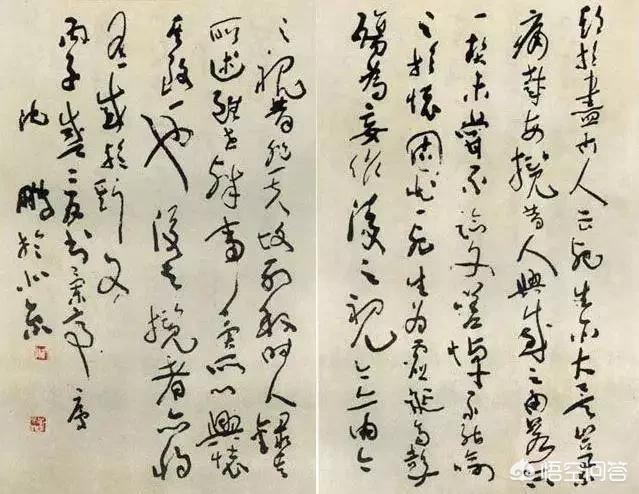 期於盡古人云死生亦大矣豈不
痛哉每攬昔人興感之由若合
一契未嘗不臨文嗟悼不能喻
之於懷固知一死生為虛誕齊彭
殤為妄作後之視今亦由今
之視昔悲夫故列敘時人錄其
所述雖世殊事異所以興懷
其致一也後之攬者亦將
有感於斯文
丙子盛夏書蘭亭序
沈鵬於北京
悟空问答